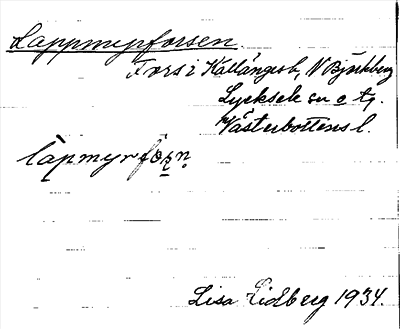 Lappmyrforsen
Fors i Kallångesb, N Björkberg
Lycksele sn o tg.
Västerbottens l.
l̀apmyrfo̱ṣṇ
Lisa Lidberg 1934.